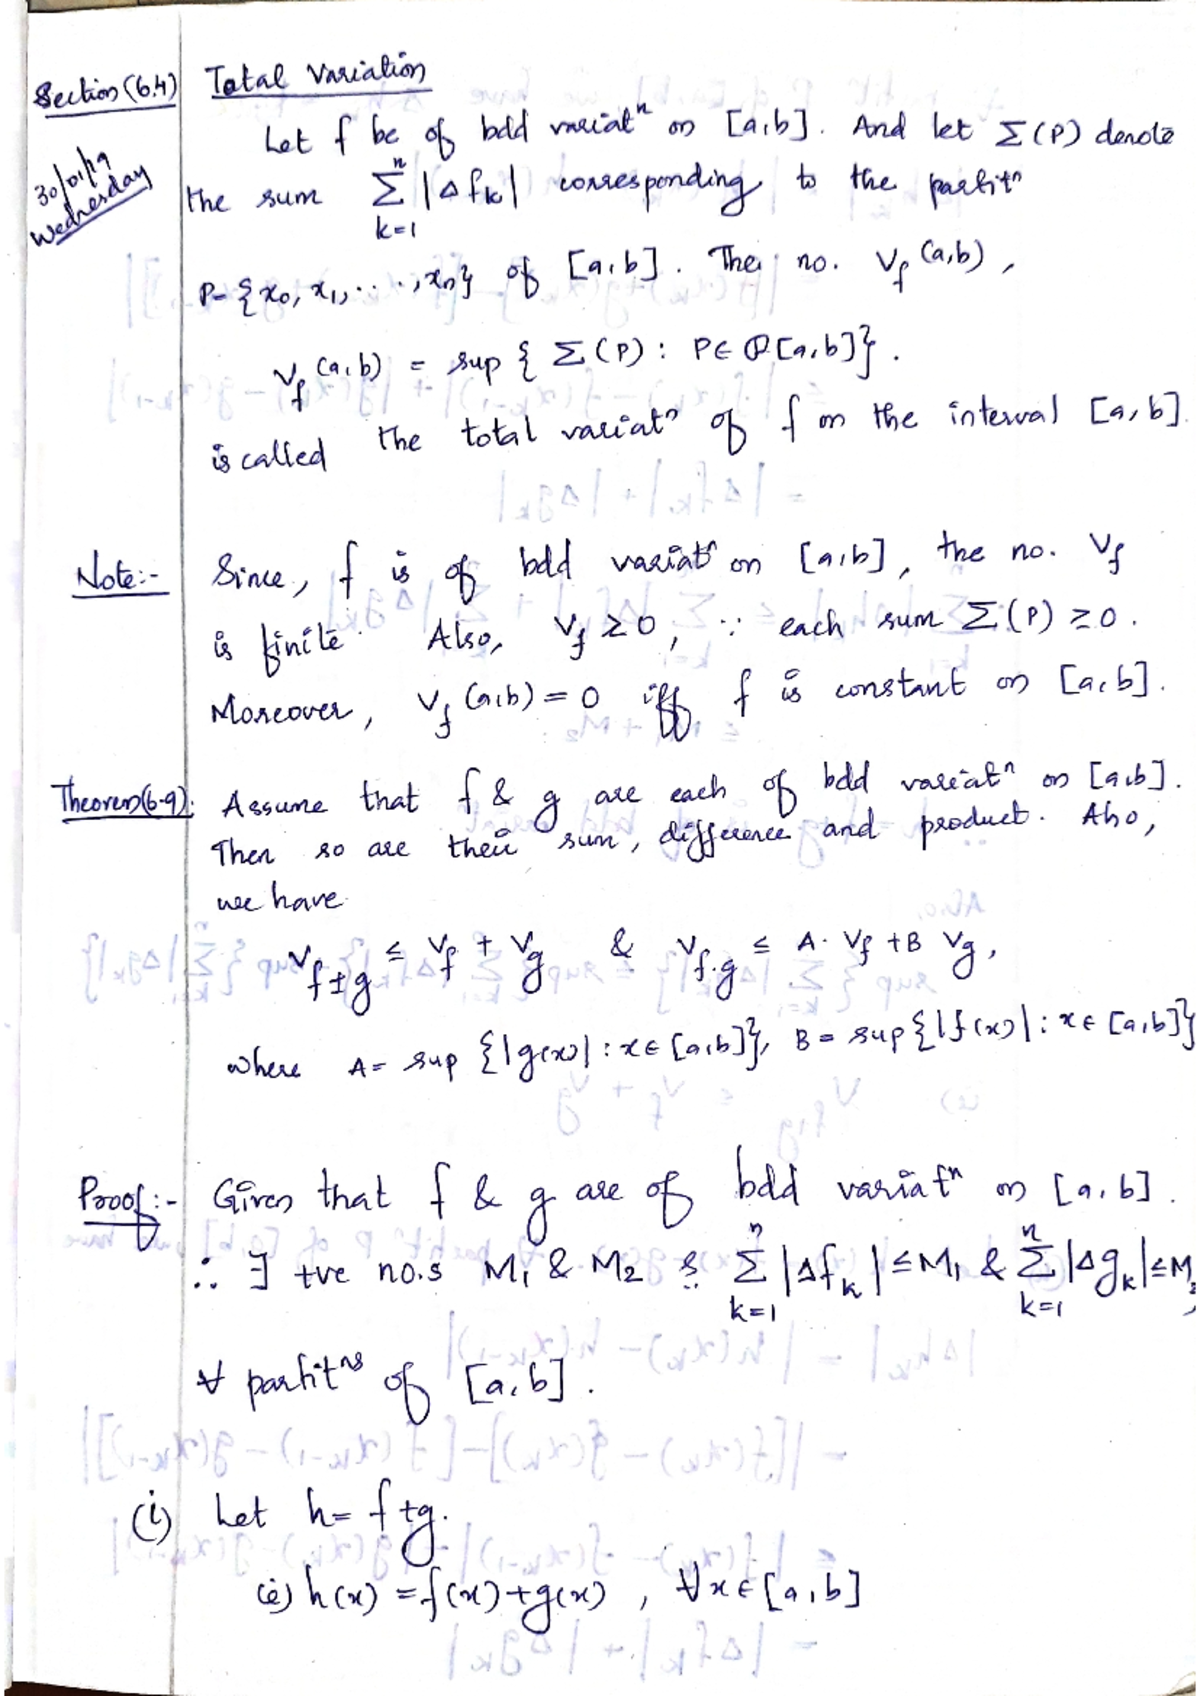 Section (6.4) Total Variation
30/01/19
Wednesday
Let f be of bdd variatⁿ on [a,b]. And let Σ(P) denote
the sum Σ_{k=1}^{n} |Δf_k| corresponding to the partitⁿ
P = {x₀, x₁, ..., xₙ} of [a,b]. The no. V_f (a,b),
V_f (a,b) = sup { Σ(P) : P ∈ ℘[a,b]}.
is called the total variatⁿ of f on the interval [a,b].
Note:- Since, f is of bdd variatⁿ on [a,b], the no. V_f
is finite. Also, V_f ≥ 0, ∵ each sum Σ(P) ≥ 0.
Moreover, V_f (a,b) = 0 iff f is constant on [a,b].
Theorem(6.9): Assume that f & g are each of bdd variatⁿ on [a,b].
Then so are their sum, difference and product. Also,
we have
V_{f±g} ≤ V_f + V_g & V_{f·g} ≤ A· V_f + B V_g,
where A = sup {|g(x)| : x ∈ [a,b]}, B = sup {|f(x)| : x ∈ [a,b]}
Proof:- Given that f & g are of bdd variatⁿ on [a,b].
∴ ∃ +ve no.s M₁ & M₂ ∋: Σ_{k=1}^{n} |Δf_k| ≤ M₁ & Σ_{k=1}^{n} |Δg_k| ≤ M₂
∀ partitⁿˢ of [a,b].
(i) Let h = f+g.
(ie) h(x) = f(x)+g(x), ∀ x ∈ [a,b]